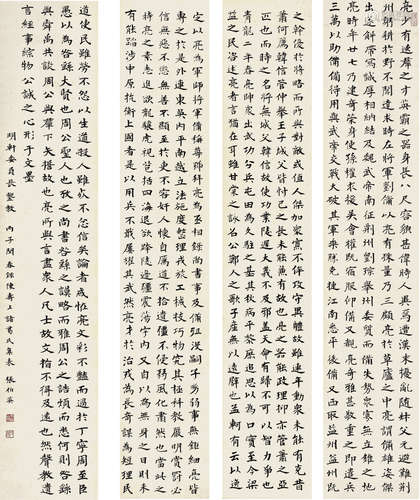 亮少有逸群之才英霸之器身長八尺容貌甚偉時人異焉遭漢末擾亂隨叔父玄避難荊
州躬耕於野不求聞達時左將軍劉備以亮有殊量乃三顧亮於草廬之中亮深謂備雄姿傑
出遂解帶寫誠厚相結納及魏武帝南征荊州劉琮舉州委質而備失勢眾寡無立錐之地
亮時年廿七乃建奇策身使孫權求援吳會權既宿服仰備又睹亮奇雅甚敬重之即遣兵
三萬人以助備備得用與武帝交戰大破其軍乘勝克捷江南悉平後備又西取益州益州既
定以亮為軍師將軍備稱尊號拜亮為丞相錄尚書事及備殂沒嗣子幼弱事無鉅細亮皆
專之於是外連東吳內平南越立法施度整理戎旅工械技巧物究其極科教嚴明賞罰必
信無惡不懲無善不顯至於吏不容奸人懷自厲道不拾遺彊不侵弱風化肅然也當此之時
亮之素志進欲龍驤虎視苞括四海退欲跨陵邊疆震蕩宇內又自以為無身之日則未
有能蹈涉中原抗衡上國者是以用兵不戢屢耀其武然亮才於治戎為長奇謀為短理民
之幹優於將略而所與對敵或值人傑加眾寡不侔攻守異體故雖連年動眾未能有克昔
蕭何薦韓信管仲舉王子城父皆忖己之長未能兼有故也亮之器能政理抑亦管蕭之亞
匹也而時之名將無城父韓信故使功業陵遲大義不及邪蓋天命有歸不可以智力爭也
青龍二年春亮帥眾出武功分兵屯田為久駐之基其秋病卒黎庶追思以為口實至今梁
益之民咨述亮者言猶在耳雖甘棠之詠召公鄭人之歌子產無以遠譬也孟軻有云以逸
道使民雖勞不怨以生道殺人雖死不忿信矣論者或怪亮文彩不豔而過於丁寧周至臣
愚以為咎繇大賢也周公聖人也考之尚書咎繇之謨略而雅周公之誥煩而悉何則咎繇
與舜禹共談周公與群下矢誓故也亮所與言盡眾人凡士故文指不得及遠也然聲教遺
言經事綜物公誠之心形于文墨
明軒委員長鑒教 丙子閏春錄陳壽上諸葛氏集表 張伯英